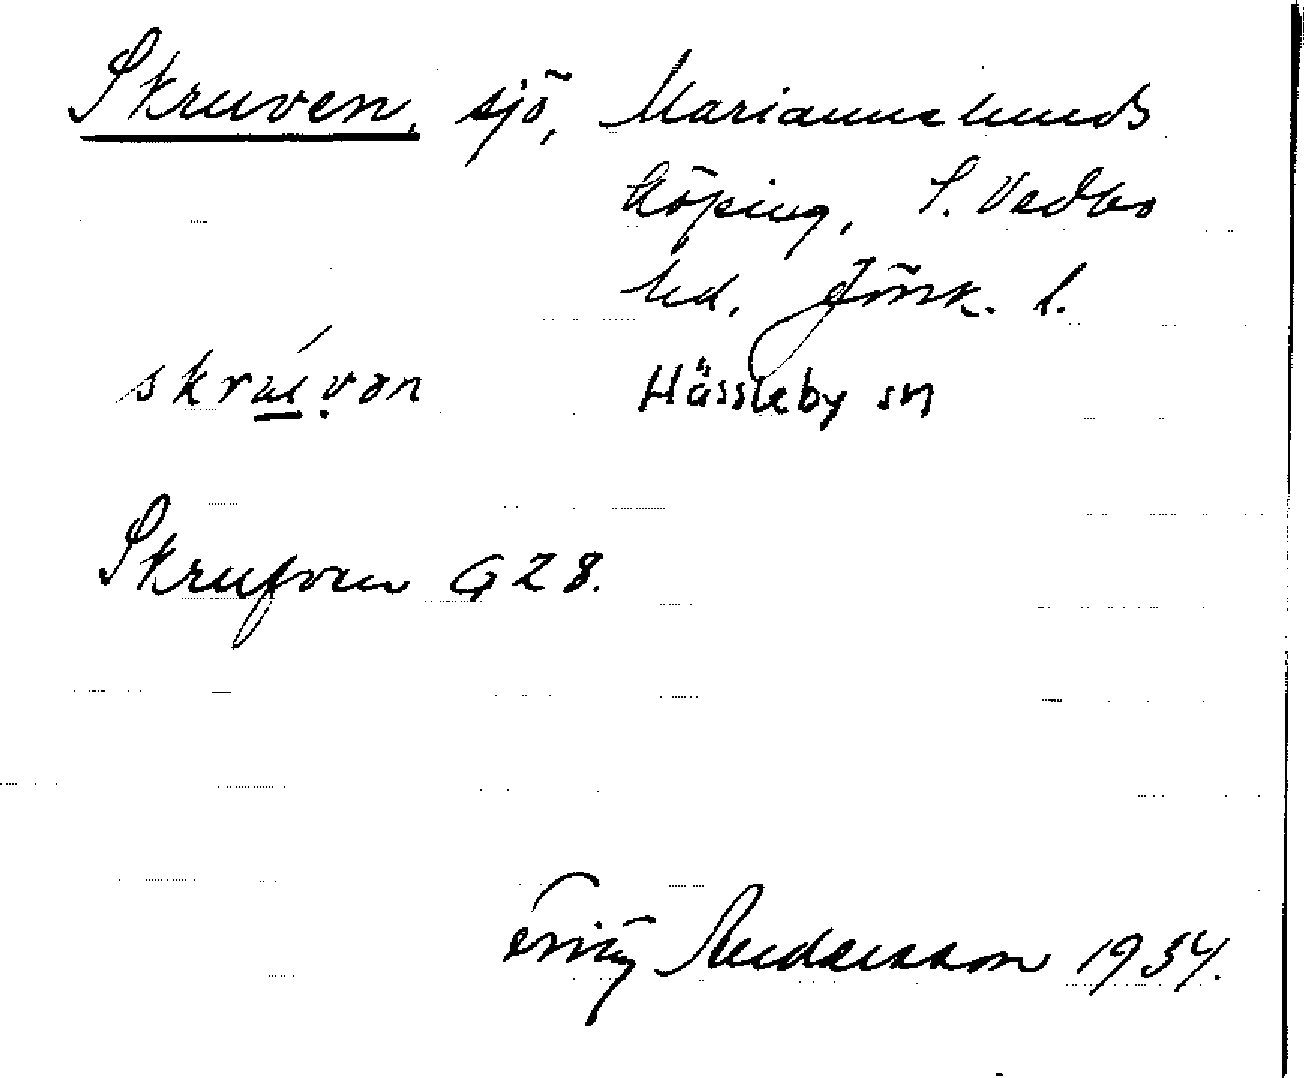 Skruven, sjö, Mariannelunds
köping, S. Vedbo
hd. Jönk. l.
skrúvən Hässleby sn
Skrufven G 28.
Fritz Andersson 1934.